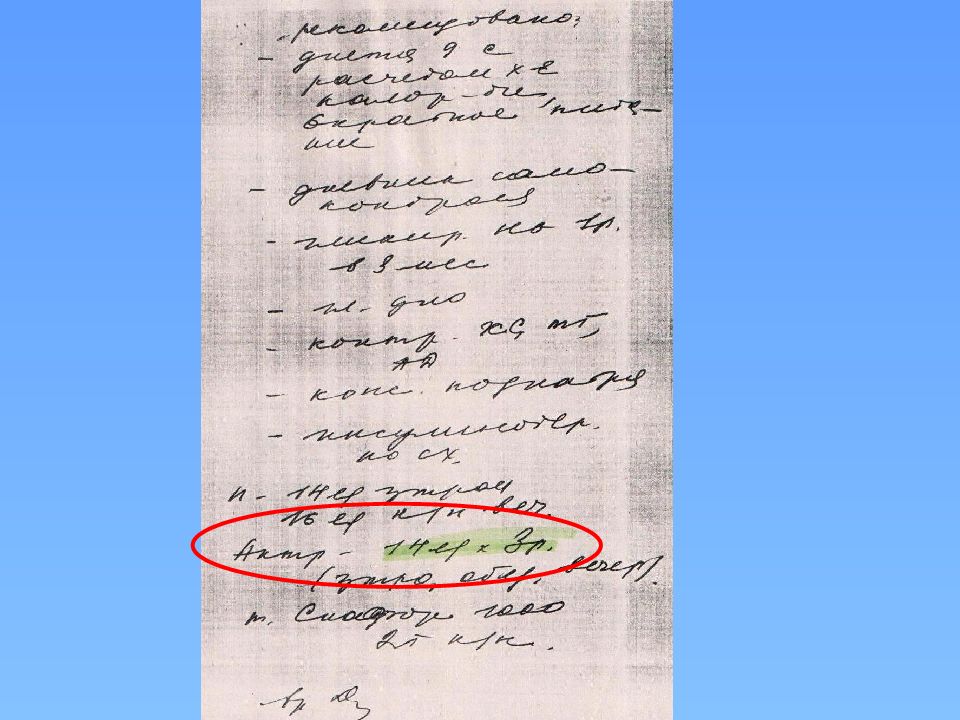 - рекомендовано:
- диета 9 с
расчетом ХЕ
калор-ти,
6кратное пита-
ние
- дневник само-
контроля
- гликир. Hb 1р.
в 3 мес
- гл. дно
- контр. ХС, ТГ,
АД
- конс. подиатра
- инсулинотер.
по сх.
н - 14 ед утром
16 ед веч.
Актр - 14 ед x 3р.
(утро, обед, вечер).
т. Сиофор 1000
2т
вр